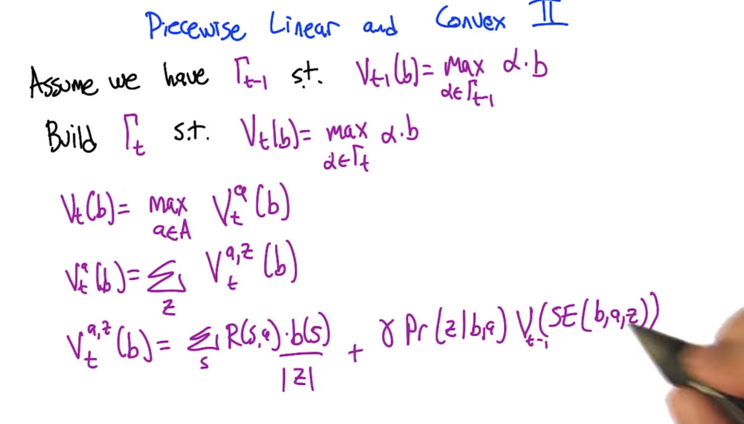 Piecewise Linear and Convex II
Assume we have Γt-1 s.t. Vt-1(b)= max α∈Γt-1 α·b
Build Γt s.t. Vt(b)= max α∈Γt α·b
Vt(b)= max a∈A Vt^a(b)
Vt^a(b)= Σz Vt^a,z(b)
Vt^a,z(b)= Σs R(s,a)·b(s)/|z| + γ Pr(z|b,a) Vt-1(SE(b,a,z))